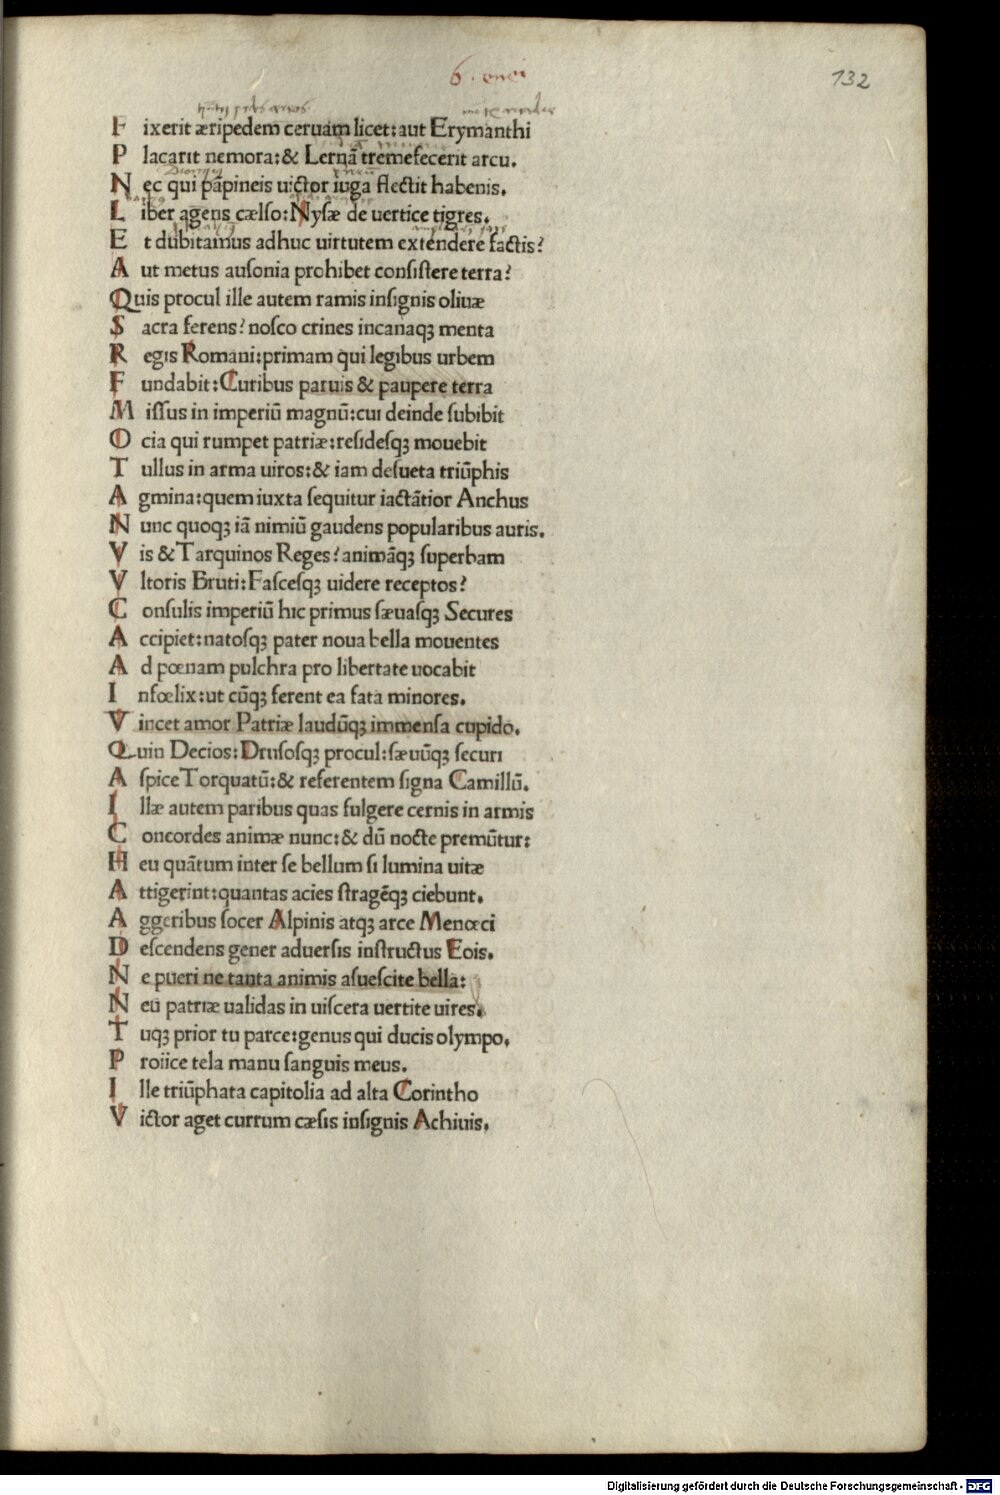 6. enei
132
Fixerit æripedem ceruam licet: aut Erymanthi
Placarit nemora: & Lernā tremefecerit arcu.
Nec qui pāpineis uictor iuga flectit habenis.
Liber agens cælso: Nysæ de uertice tigres.
Et dubitamus adhuc uirtutem extendere factis?
Aut metus ausonia prohibet consistere terra?
Quis procul ille autem ramis insignis oliuæ
Sacra ferens? nosco crines incanaqꝫ menta
Regis Romani: primam qui legibus urbem
Fundabit: Curibus paruis & paupere terra
Missus in imperiū magnū: cui deinde subibit
Ocia qui rumpet patriæ: residesqꝫ mouebit
Tullus in arma uiros: & iam desueta triūphis
Agmina: quem iuxta sequitur iactātior Anchus
Nunc quoqꝫ iā nimiū gaudens popularibus auris.
Vis & Tarquinos Reges? animāqꝫ superbam
Vltoris Bruti: Fascesqꝫ uidere receptos?
Consulis imperiū hic primus sæuasqꝫ Secures
Accipiet: natosqꝫ pater noua bella mouentes
Ad pœnam pulchra pro libertate uocabit
Infœlix: ut cūqꝫ ferent ea fata minores.
Vincet amor Patriæ laudūqꝫ immensa cupido.
Quin Decios: Drusosqꝫ procul: sæuūqꝫ securi
Aspice Torquatū: & referentem signa Camillū.
Illæ autem paribus quas fulgere cernis in armis
Concordes animæ nunc: & dū nocte premūtur:
Heu quātum inter se bellum si lumina uitæ
Attigerint: quantas acies stragēqꝫ ciebunt.
Aggeribus socer Alpinis atqꝫ arce Menœci
Descendens gener aduersis instructus Eois.
Ne pueri ne tanta animis asuescite bella:
Neu patriæ ualidas in uiscera uertite uires.
Tuqꝫ prior tu parce: genus qui ducis olympo.
Proiice tela manu sanguis meus.
Ille triūphata capitolia ad alta Corintho
Victor aget currum cæsis insignis Achiuis.
Digitalisierung gefördert durch die Deutsche Forschungsgemeinschaft - DFG